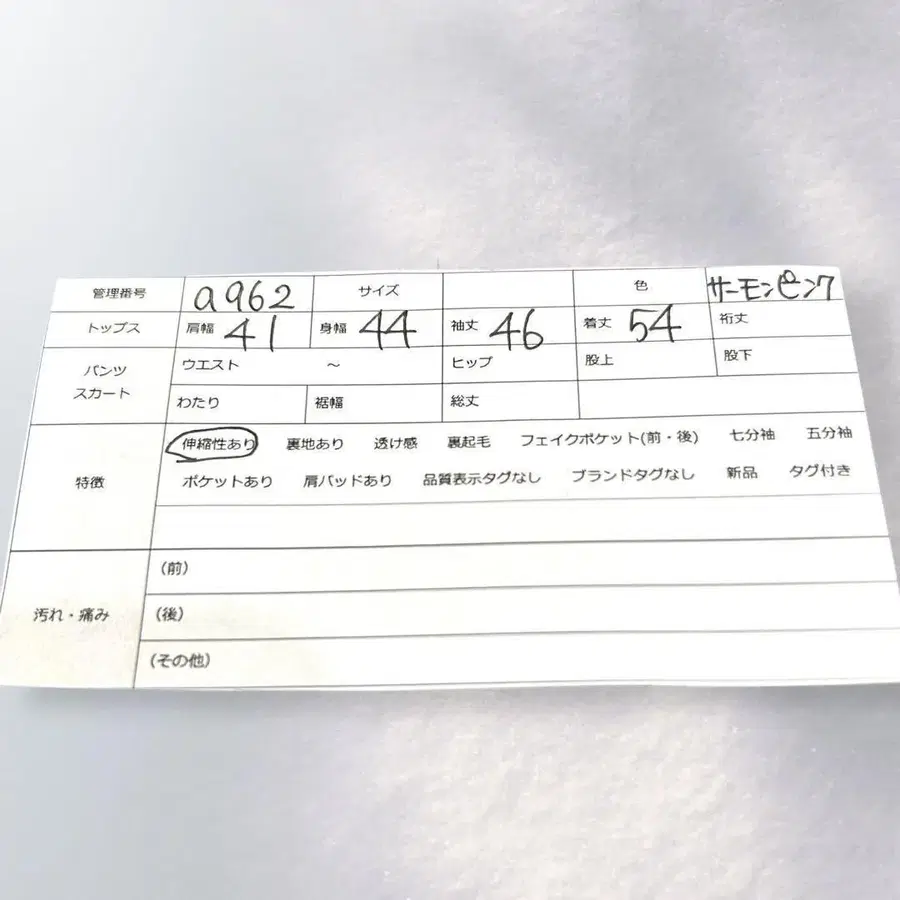 管理番号 a962 サイズ 色 サーモンピンク
トップス 肩幅 41 身幅 44 袖丈 46 着丈 54 裄丈
パンツ スカート ウエスト ～ ヒップ 股上 股下
わたり 裾幅 総丈
特徴 伸縮性あり 裏地あり 透け感 裏起毛 フェイクポケット(前・後) 七分袖 五分袖
ポケットあり 肩パッドあり 品質表示タグなし ブランドタグなし 新品 タグ付き
汚れ・痛み (前)
(後)
(その他)